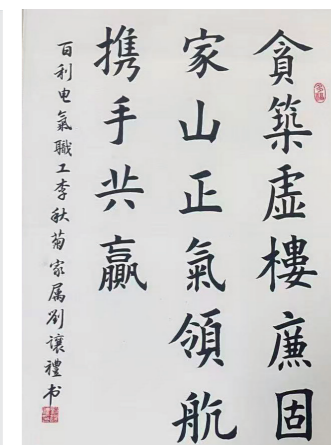 貪築虛樓廉固
家山正氣領航
携手共贏
百利电氣職工李秋菊家属劉讓禮书